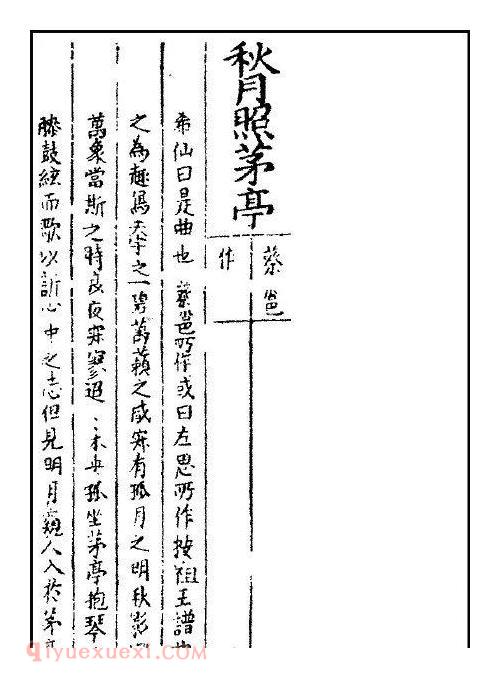 秋月照茅亭
蔡邕
作
希仙曰是曲也蔡邕所作或曰左思所作按祖王譜
之為趣焉天宇之一碧萬籟之咸寂有孤月之明秋影
萬象當斯之時良夜寂寥迢〻未央孤坐茅亭抱琴
膝鼓絃而歌以訴心中之志但見明月窺人入於茅
qiyuexuexi.com